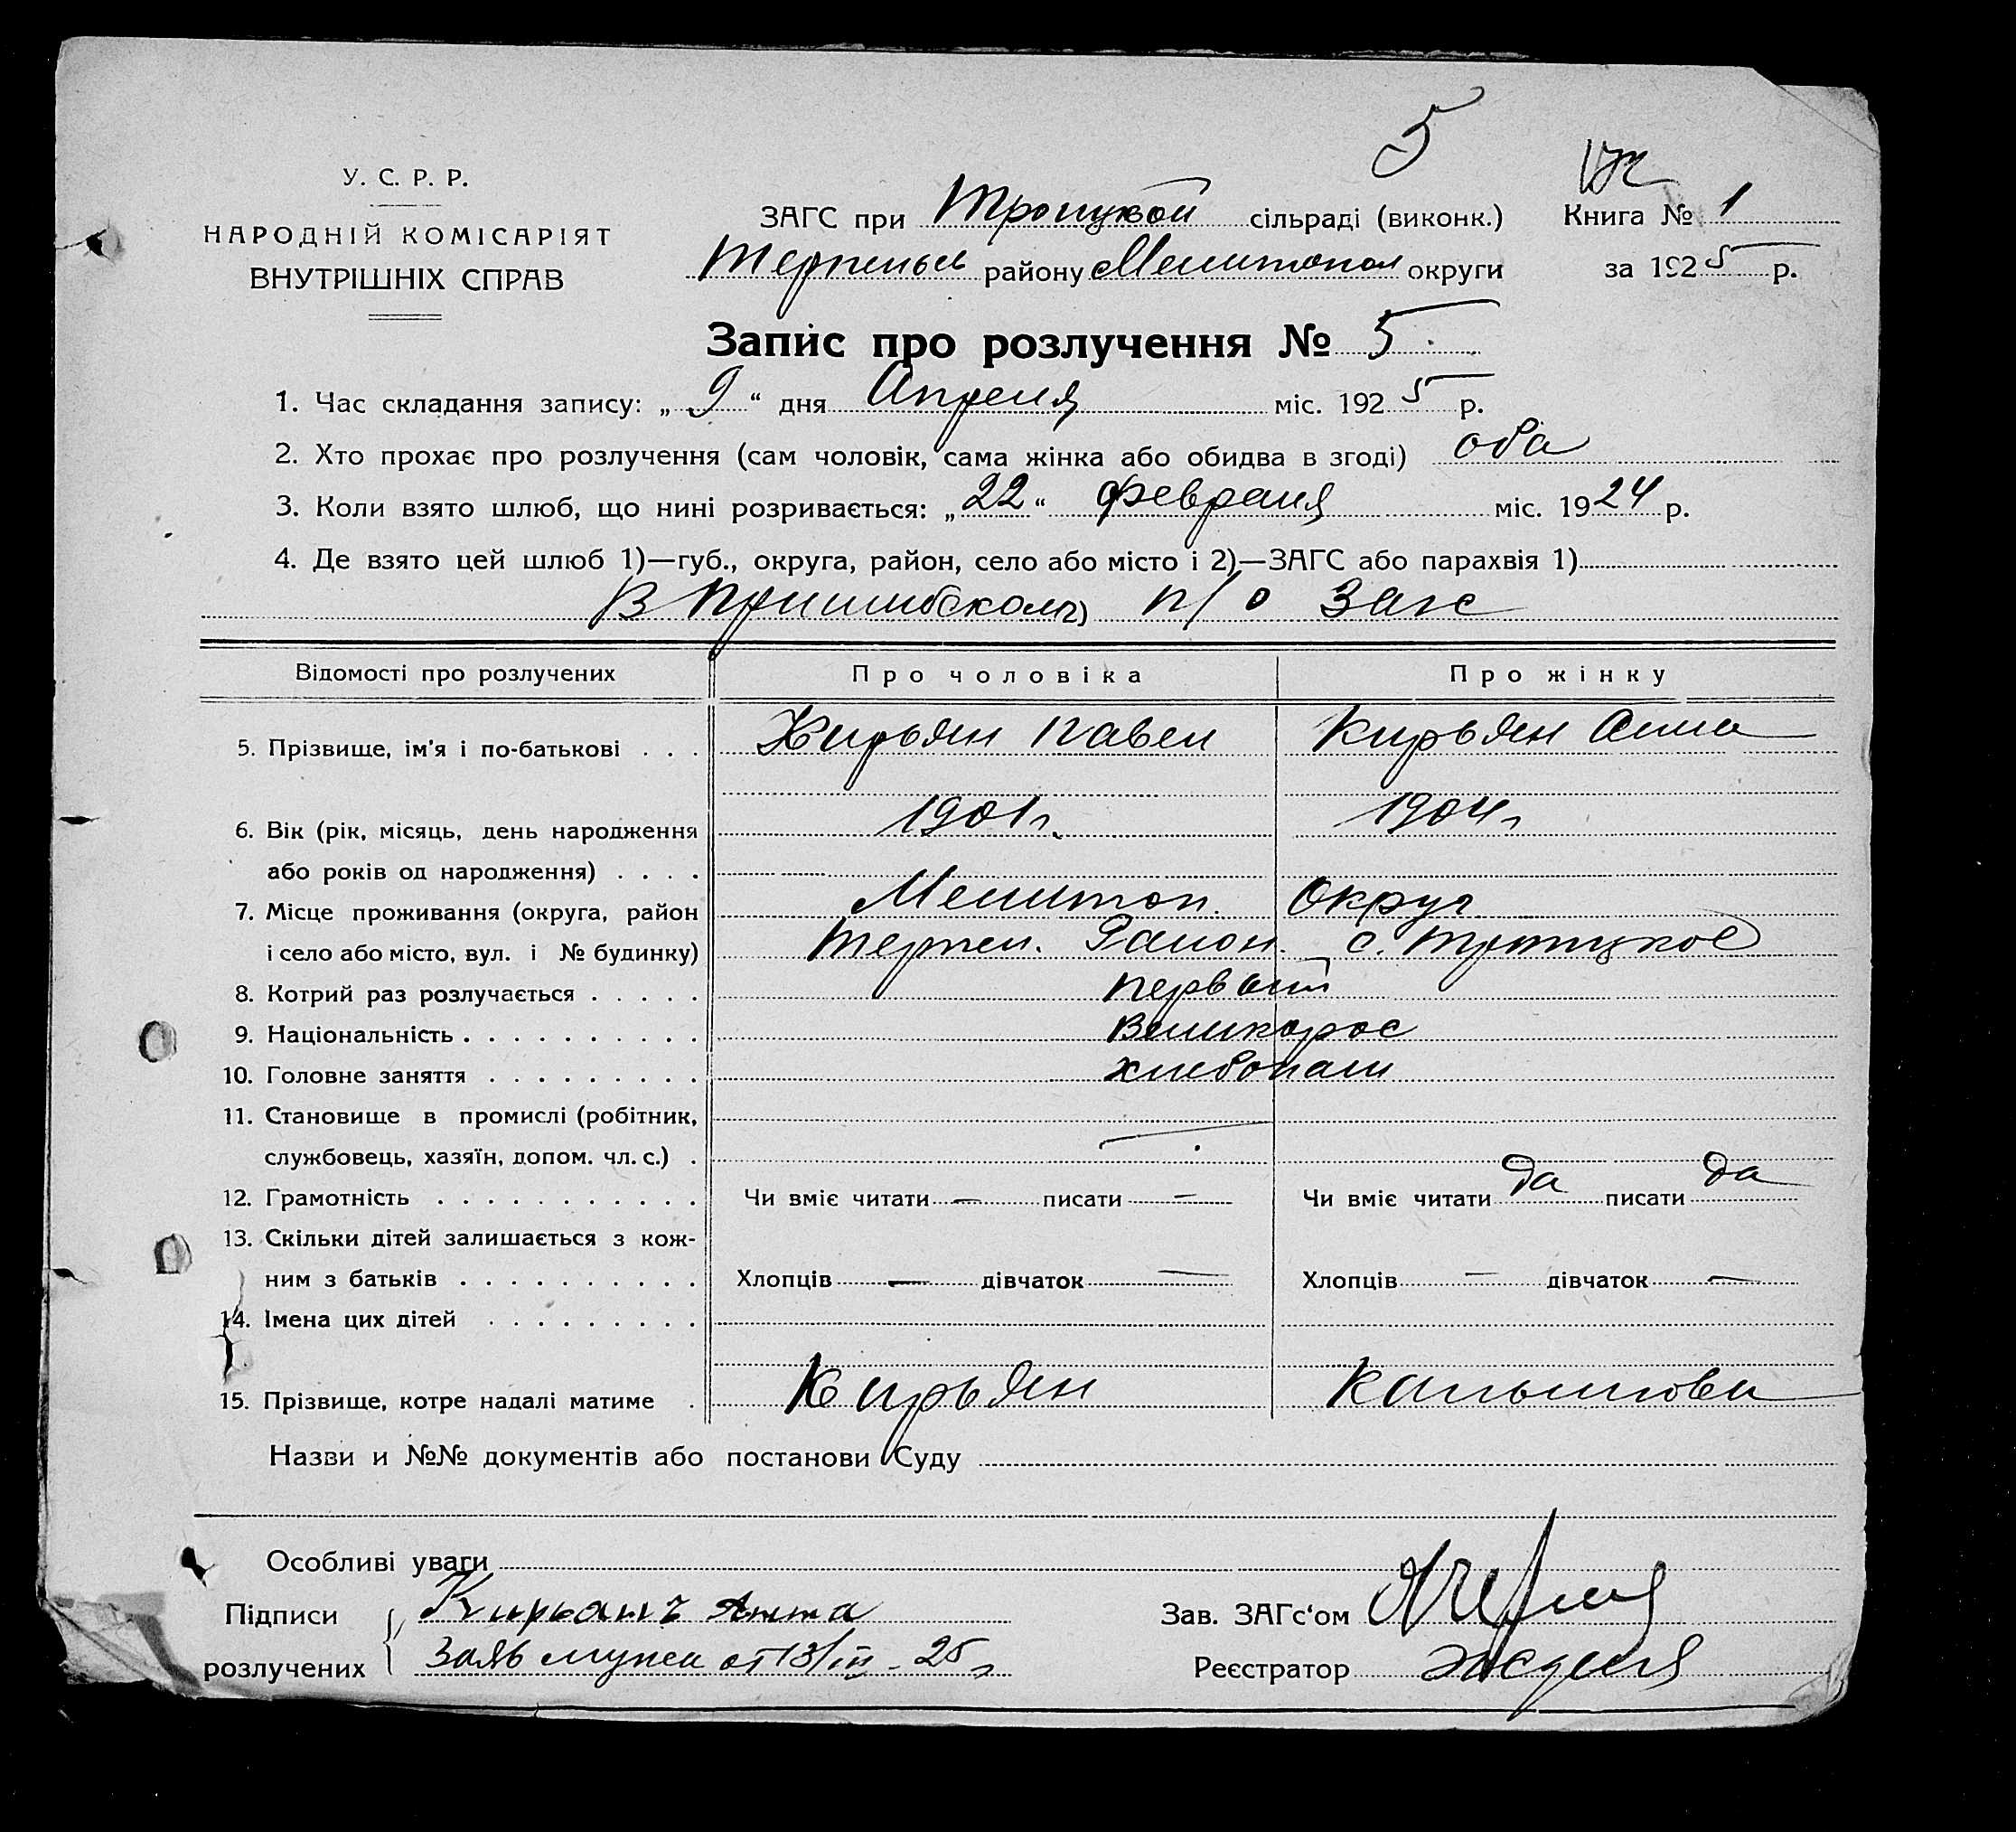 5
У. С. Р. Р.
НАРОДНІЙ КОМІСАРІЯТ
ВНУТРІШНІХ СПРАВ
ЗАГС при Троицкой сільраді (виконк.)
Книга № 1
Терпеньев району Мелитопол округи
за 1925 р.
Запис про розлучення № 5.
1. Час складання запису: „ 9 “ дня Апреля міс. 1925 р.
2. Хто прохає про розлучення (сам чоловік, сама жінка або обидва в згоді) оба
3. Коли взято шлюб, що нині розривається: „22“ февраля міс. 1924 р.
4. Де взято цей шлюб 1)—губ., округа, район, село або місто і 2)—ЗАГС або парахвія 1)
В Пришибском 2) п/о Загс
Відомості про розлучених Про чоловіка Про жінку
5. Прізвище, ім'я і по-батькові . . . Кирьян Павел Кирьян Анна
6. Вік (рік, місяць, день народження 1901 г. 1904 г
або років од народження) . . . .
7. Місце проживання (округа, район Мелитоп. Округ
і село або місто, вул. і № будинку) Терпен. Район. с. Троицкое
8. Котрий раз розлучається . . . . . первый
9. Національність . . . . . . . . . . Великорос
10. Головне заняття . . . . . . . . . хлебопаш
11. Становище в промислі (робітник,
службовець, хазяїн, допом. чл. с.) .
12. Грамотність . . . . . . . . . . . Чи вміє читати — писати — Чи вміє читати да писати да
13. Скільки дітей залишається з кож-
ним з батьків . . . . . . . . . . Хлопців — дівчаток — Хлопців — дівчаток —
14. Імена цих дітей . . . . . . . . .
15. Прізвище, котре надалі матиме . Кирьян
Назви и №№ документів або постанови Суду
Особливі уваги
Підписи Кирьанъ Анна
Зав. ЗАГс‘ом
розлучених Заяв мужа от 13/III - 25 г
Реєстратор